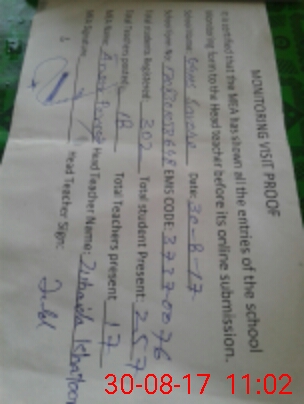 MONITORING VISIT PROOF
It is certified that the MEA has shown all the entries of the school
Monitoring form to the Head teacher before its online submission.
School Name: Date: 30-8-17
School Sem No: EMIS CODE: 37270076
Total students Registered: 302 Total student Present: 257
Total Teachers posted: 18 Total Teachers present 17
MEA Name: Head Teacher Name: Zubaida Khatoon
MEA Signature: Head Teacher Sign:
30-08-17 11:02